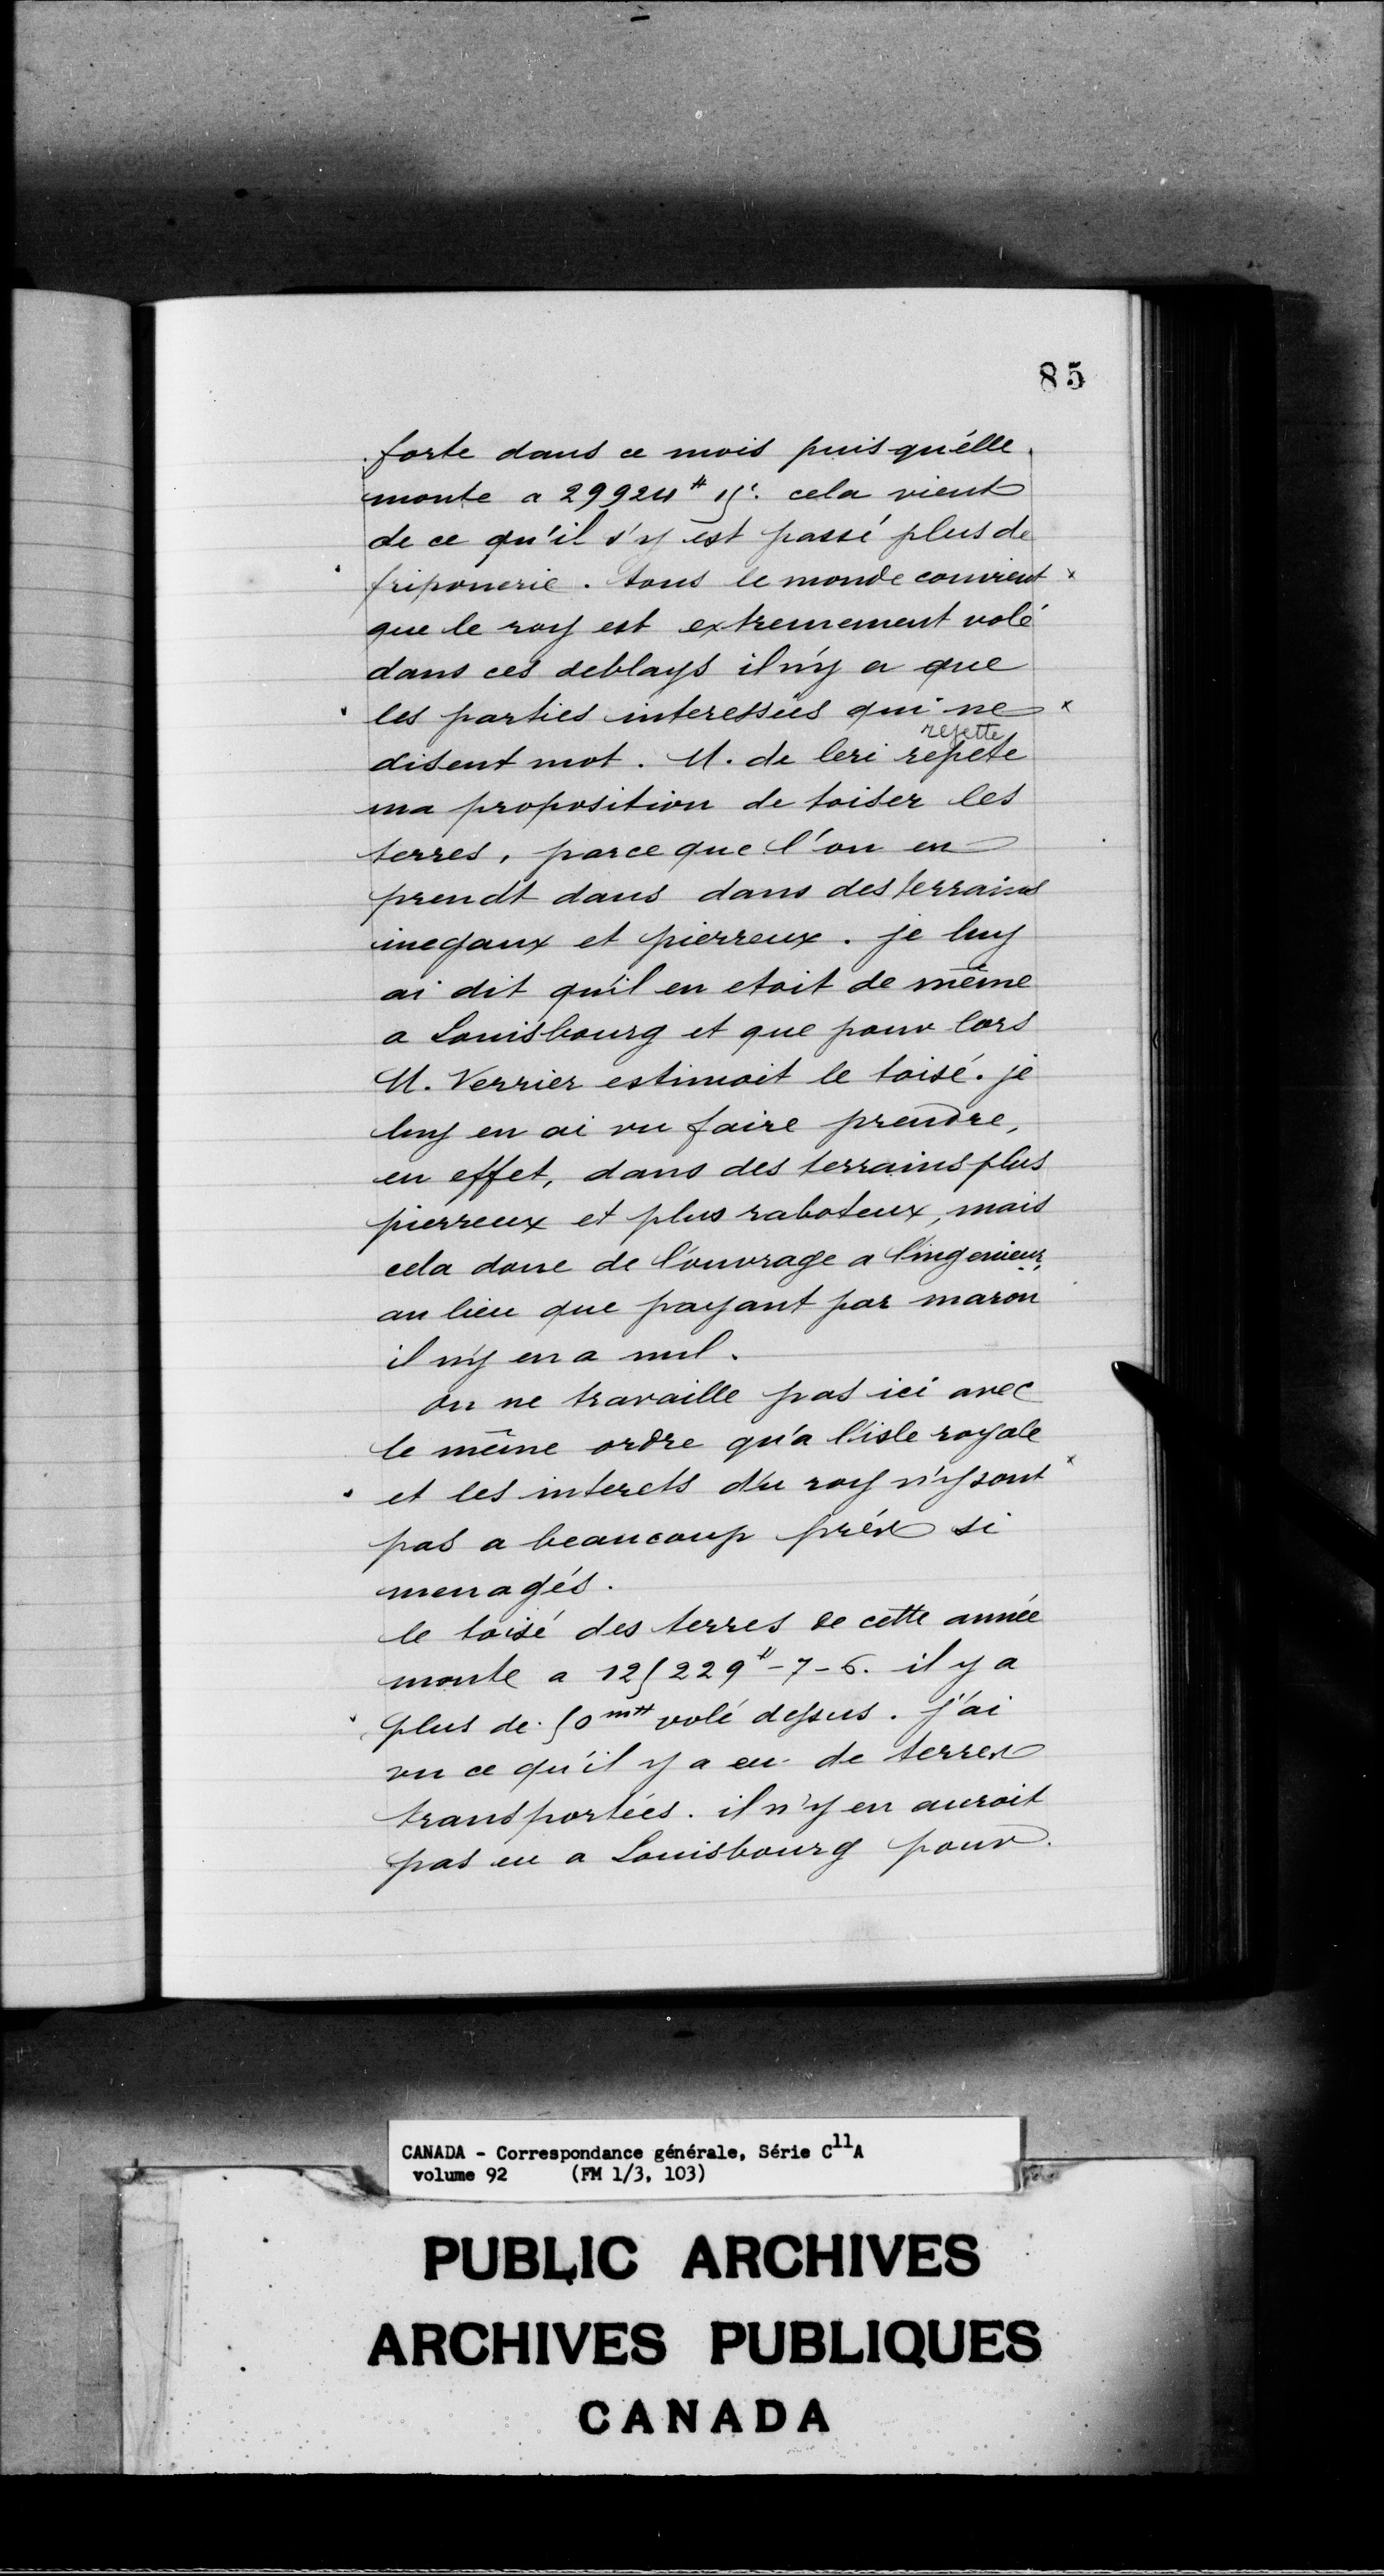 85
forte dans ce mois puis qu'élle
monte a 29924# 15ˢ. cela vient
de ce qu'il s'y est passé plus de
friponerie. tous le monde convient x
que le roy est extremement volé
dans ces deblays il n'y a que
les parties interessées qui ne x
rejette
disent mot. M. de leri repete
ma proposition de toiser les
terres, parce que l'on en
prendt dans dans des terrains
inegaux et pierreux. je luy
ai dit qu'il en etoit de même
a Louisbourg et que pour lors
M. Verrier estimoit le toisé. je
luy en ai vu faire prendre,
en effet, dans des terrains plus
pierreux et plus raboteux, mais
cela done de l'ouvrage a l'ingenieur,
au lieu que payant par maron
il n'y en a nul.
on ne travaille pas ici avec
le même ordre qu'a l'isle royale
et les interets du roy n'y sont x
pas a beaucoup prés si
menagés.
le toisé des terres de cette année
monte a 125229#-7-6. il y a
plus de 50 m# volé dessus. j'ai
vu ce qu'il y a eu de terres
transportées. il n'y en auroit
pas eu a Louisbourg pour
CANADA - Correspondance générale, Série C11A
volume 92 (FM 1/3, 103)
PUBLIC ARCHIVES
ARCHIVES PUBLIQUES
CANADA